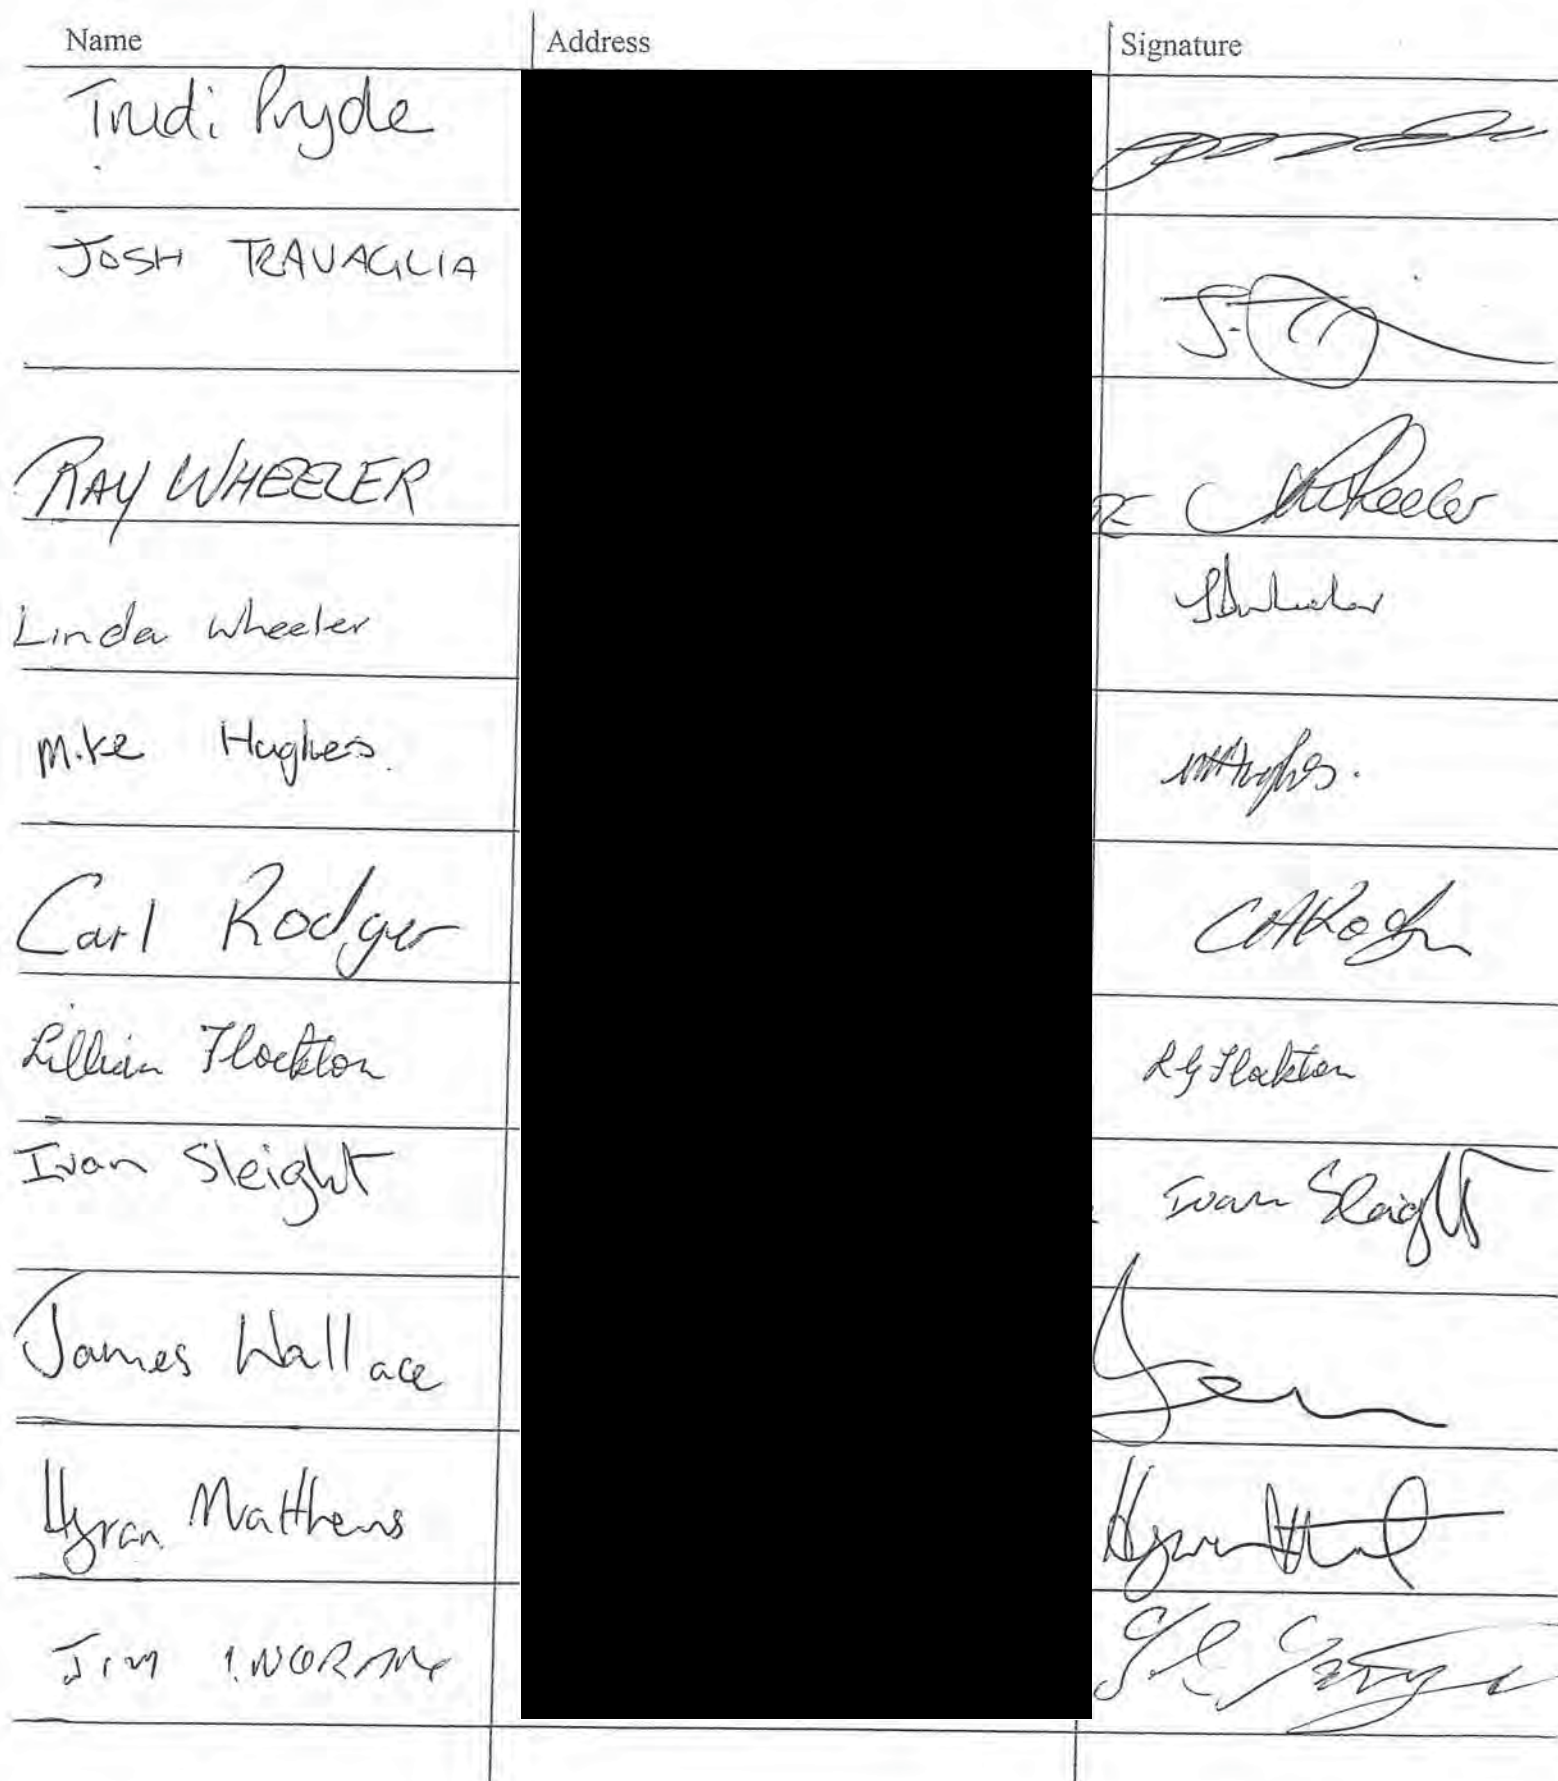 Name Address Signature
Trudi Pryde
JOSH TRAVAGLIA
RAY WHEELER Wheeler
Linda Wheeler
Mike Hughes. MHughes.
Carl Rodger CARodger
Lillian Flockton LG Flockton
Ivan Sleight Ivan Sleight
James Wallace
Hyran Matthews
JIM